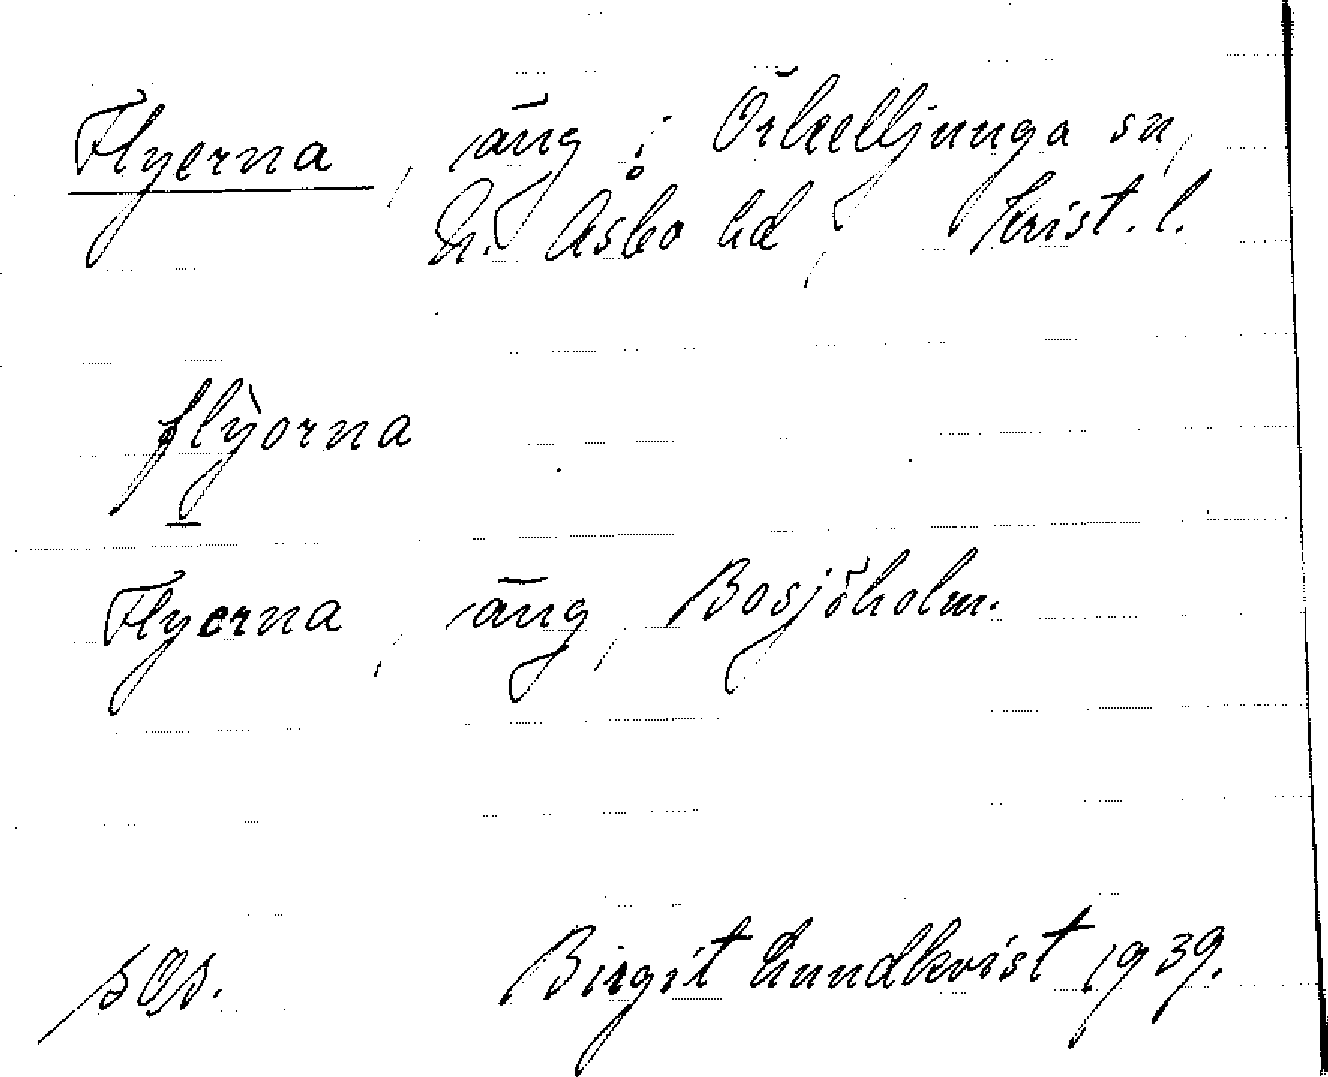 Flyerna, äng i Örkelljunga sn,
N. Åsbo hd, Krist. l.
flỳorna
Flyerna, äng, Bosjöholm.
Birgit Lundkvist 1939.